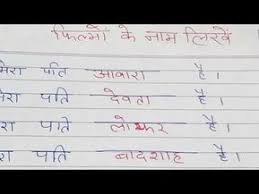 फिल्मों के नाम लिखें
मेरा पति आवारा है।
मेरा पति देवता है।
रा पति लोफर है।
रा पति बादशाह है।